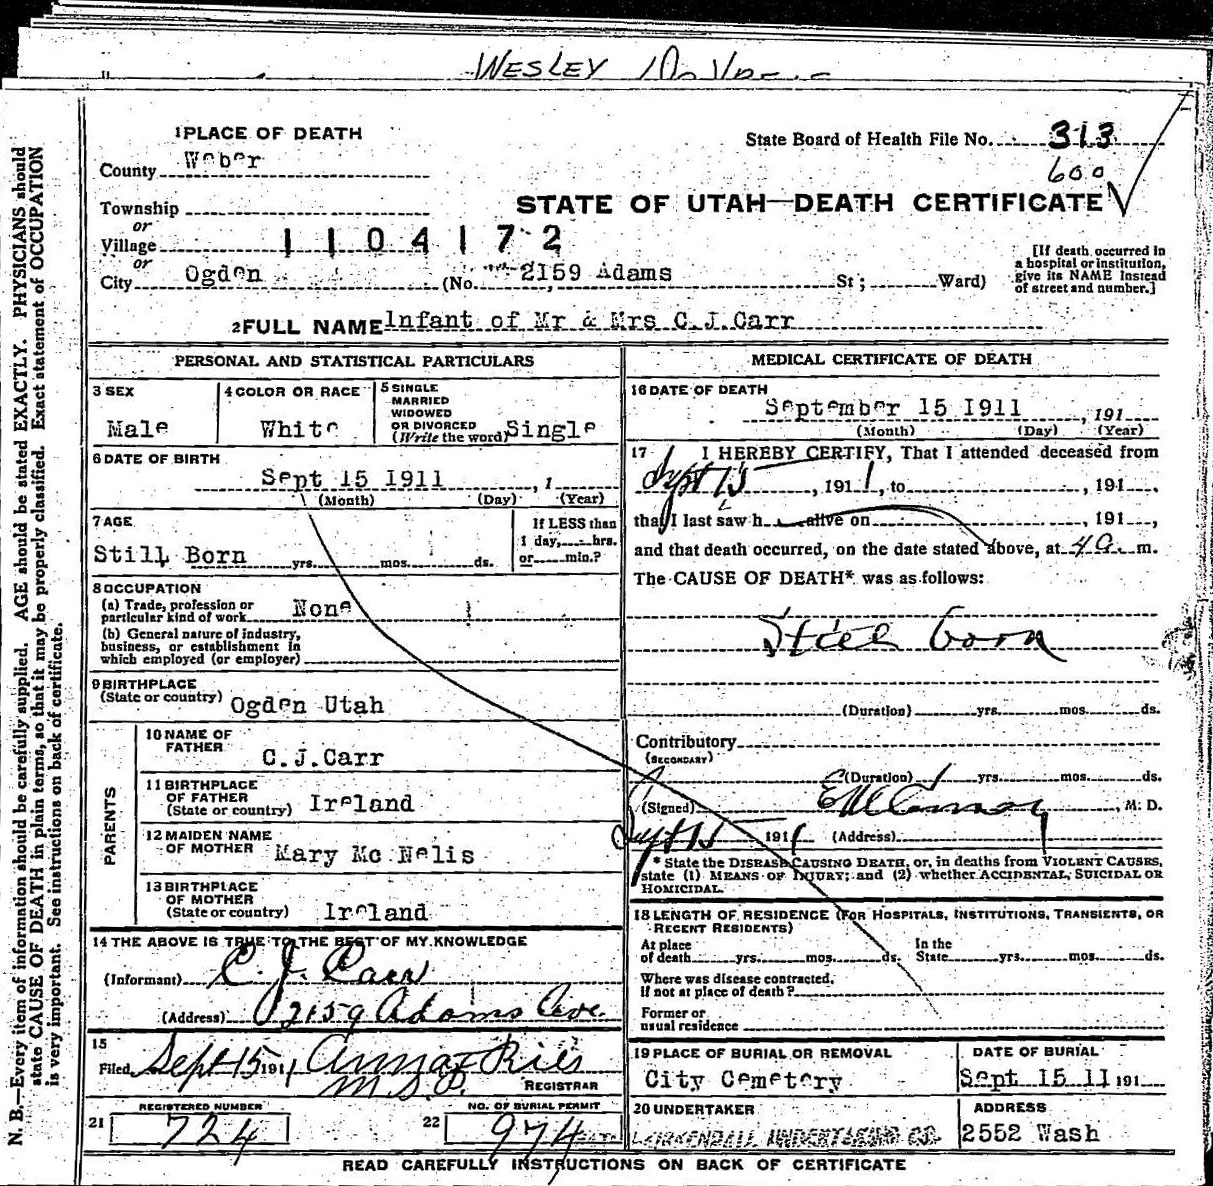 WESLEY
1 PLACE OF DEATH
County Weber
State Board of Health File No. 313
600
Township
or
Village
1104172
or
City Ogden (No. 2159 Adams St; Ward)
STATE OF UTAH—DEATH CERTIFICATE
[If death occurred in
a hospital or institution,
give its NAME instead
of street and number.]
2 FULL NAME Infant of Mr & Mrs C.J.Carr
PERSONAL AND STATISTICAL PARTICULARS
3 SEX
Male
4 COLOR OR RACE
White
5 SINGLE
MARRIED
WIDOWED
OR DIVORCED
(Write the word) Single
6 DATE OF BIRTH
Sept 15 1911 , 1
(Month) (Day) (Year)
7 AGE
Still Born yrs. mos. ds.
If LESS than
1 day, hrs.
or min.?
8 OCCUPATION
(a) Trade, profession or
particular kind of work None
(b) General nature of industry,
business, or establishment in
which employed (or employer)
9 BIRTHPLACE
(State or country) Ogden Utah
PARENTS
10 NAME OF
FATHER C.J.Carr
11 BIRTHPLACE
OF FATHER
(State or country) Ireland
12 MAIDEN NAME
OF MOTHER Mary Mc Nelis
13 BIRTHPLACE
OF MOTHER
(State or country) Ireland
14 THE ABOVE IS TRUE TO THE BEST OF MY KNOWLEDGE
(Informant) C. J. Carr
(Address) 2159 Adams Ave.
15
Filed Sept 15 1911 Anna F Ries
REGISTRAR
REGISTERED NUMBER
21 724
NO. OF BURIAL PERMIT
22 974
MEDICAL CERTIFICATE OF DEATH
16 DATE OF DEATH
September 15 1911 , 191
(Month) (Day) (Year)
17 I HEREBY CERTIFY, That I attended deceased from
Sept 15 , 1911, to , 191 ,
that I last saw h alive on , 191 ,
and that death occurred, on the date stated above, at 4 a. m.
The CAUSE OF DEATH* was as follows:
Still born
(Duration) yrs. mos. ds.
Contributory
(SECONDARY)
(Duration) yrs. mos. ds.
(Signed) , M. D.
Sept 15 1911 (Address)
* State the DISEASE CAUSING DEATH, or, in deaths from VIOLENT CAUSES,
state (1) MEANS OF INJURY; and (2) whether ACCIDENTAL, SUICIDAL OR
HOMICIDAL.
18 LENGTH OF RESIDENCE (FOR HOSPITALS, INSTITUTIONS, TRANSIENTS, OR
RECENT RESIDENTS)
At place
of death yrs. mos. ds.
In the
State yrs. mos. ds.
Where was disease contracted,
if not at place of death?
Former or
usual residence
19 PLACE OF BURIAL OR REMOVAL
City Cemetery
DATE OF BURIAL
Sept 15 11 191
20 UNDERTAKER
LARKENDALL UNDERTAKING CO.
ADDRESS
2552 Wash
READ CAREFULLY INSTRUCTIONS ON BACK OF CERTIFICATE
N. B.—Every item of information should be carefully supplied. AGE should be stated EXACTLY. PHYSICIANS should
state CAUSE OF DEATH in plain terms, so that it may be properly classified. Exact statement of OCCUPATION
is very important. See instructions on back of certificate.